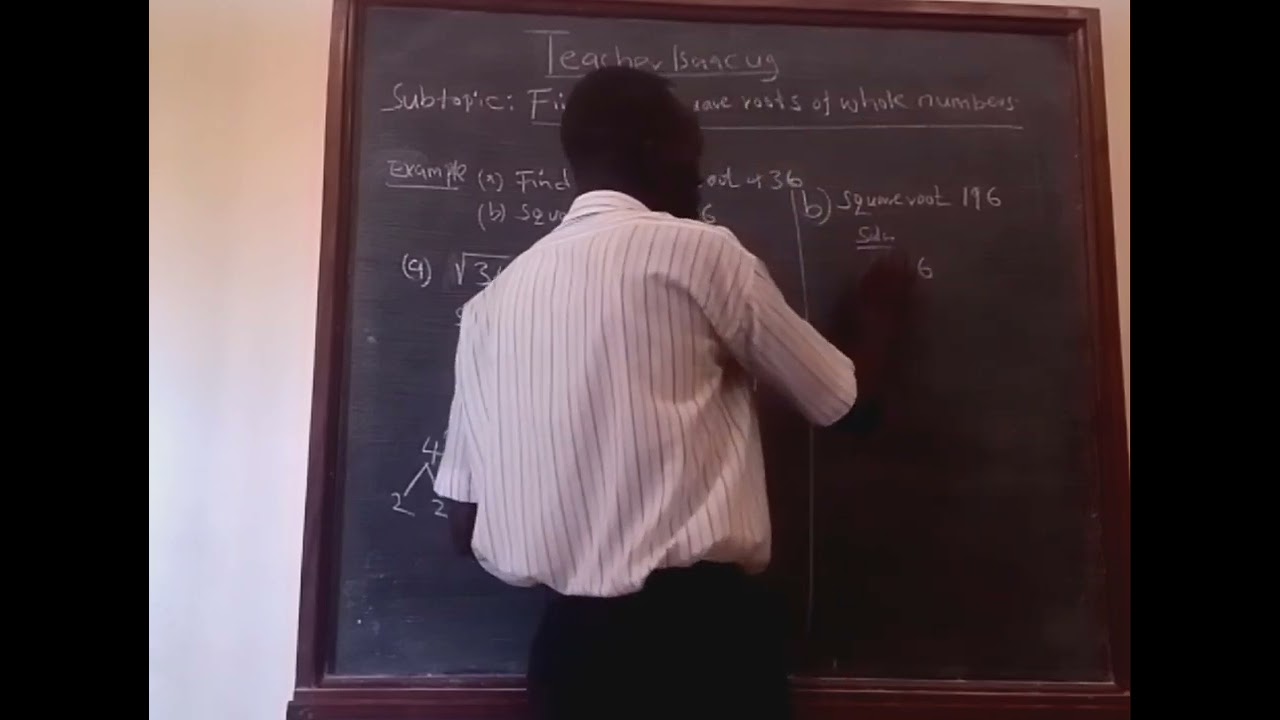 Teacher Isaac ug
Subtopic: Fi are roots of whole numbers.
Example (a) Find oot of 36
(b) Squ 6
(a) √3
4
2 2
b) Square root 196
Soln
6